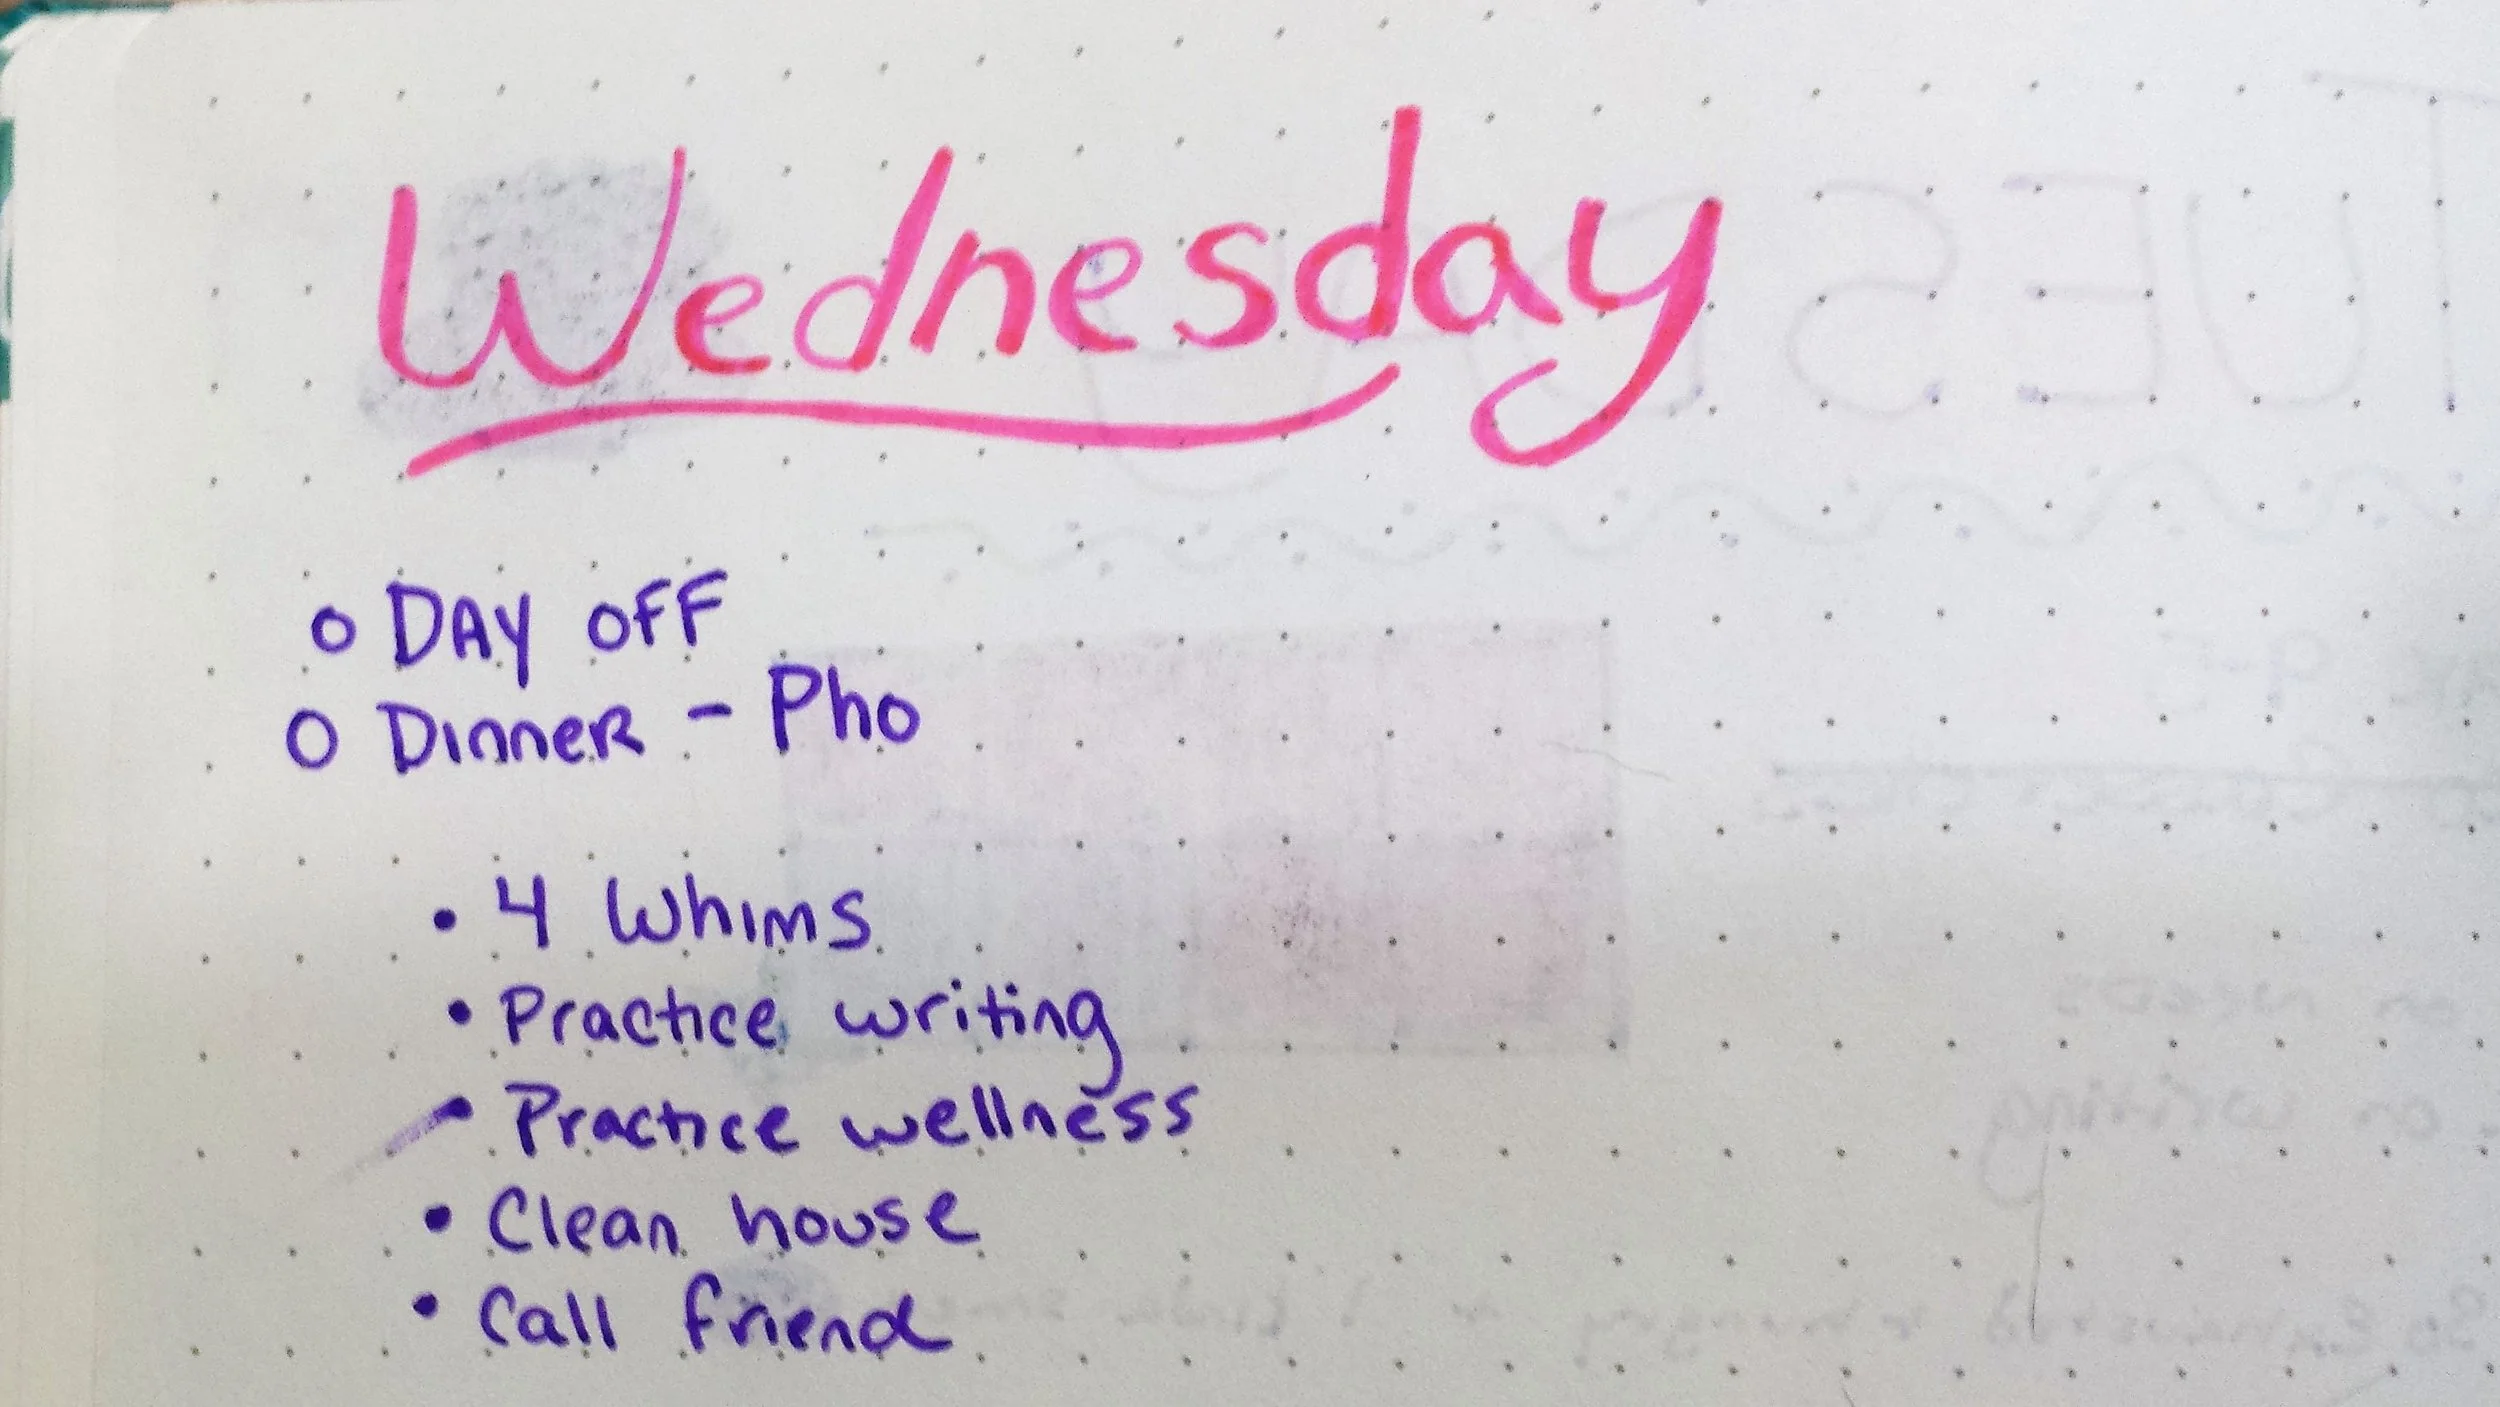 Wednesday
o DAY OFF
o Dinner - Pho
• 4 Whims
• Practice writing
• Practice wellness
• Clean house
• Call friend